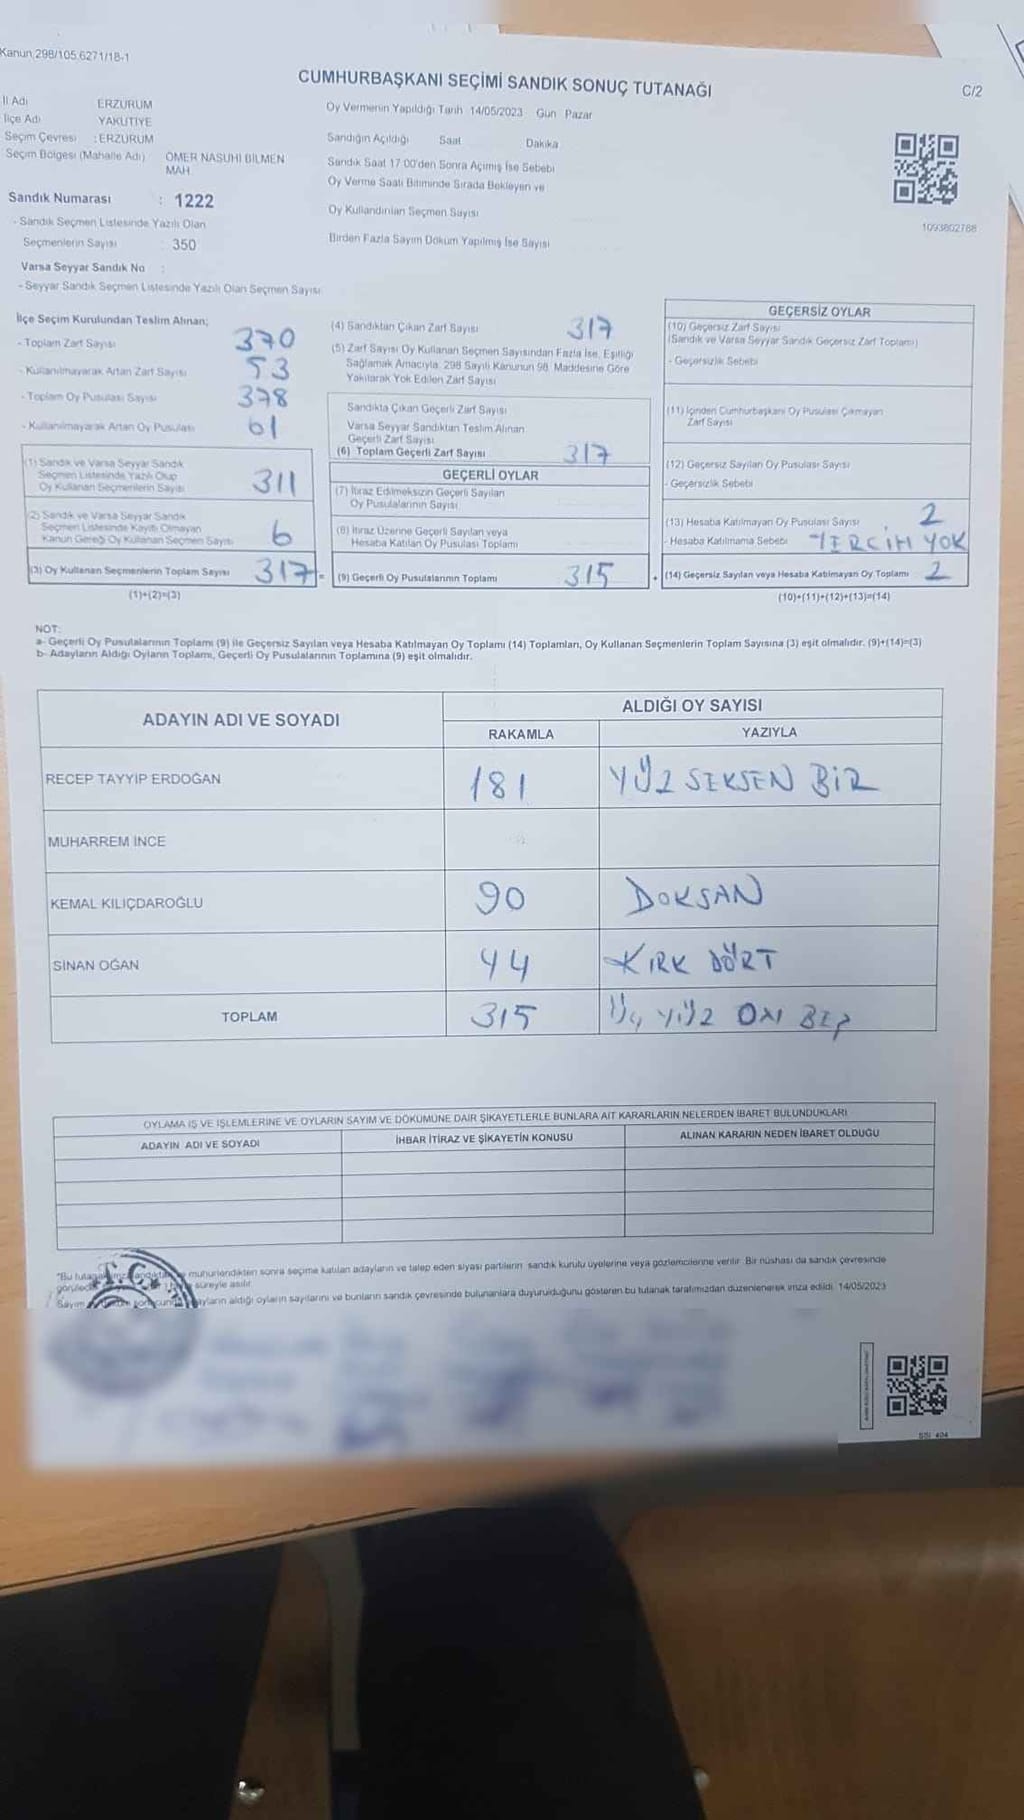 Kanun,298/105,6271/18-1
CUMHURBAŞKANI SEÇİMİ SANDIK SONUÇ TUTANAĞI
C/2
İl Adı ERZURUM
İlçe Adı YAKUTİYE
Seçim Çevresi :ERZURUM
Seçim Bölgesi (Mahalle Adı) ÖMER NASUHİ BİLMEN
MAH.
Sandık Numarası : 1222
- Sandık Seçmen Listesinde Yazılı Olan
Seçmenlerin Sayısı : 350
Varsa Seyyar Sandık No :
- Seyyar Sandık Seçmen Listesinde Yazılı Olan Seçmen Sayısı:
Oy Vermenin Yapıldığı Tarih 14/05/2023 Gün Pazar
Sandığın Açıldığı Saat Dakika
Sandık Saat 17:00'den Sonra Açımış İse Sebebi
Oy Verme Saati Bitiminde Sırada Bekleyen ve
Oy Kullandırılan Seçmen Sayısı
Birden Fazla Sayım Döküm Yapılmış İse Sayısı
1093802788
İlçe Seçim Kurulundan Teslim Alınan;
- Toplam Zarf Sayısı 370
- Kullanılmayarak Artan Zarf Sayısı 53
- Toplam Oy Pusulası Sayısı 378
- Kullanılmayarak Artan Oy Pusulası 61
(1) Sandık ve Varsa Seyyar Sandık
Seçmen Listesinde Yazılı Olup
Oy Kullanan Seçmenlerin Sayısı 311
(2) Sandık ve Varsa Seyyar Sandık
Seçmen Listesinde Kayıtlı Olmayan
Kanun Gereği Oy Kullanan Seçmen Sayısı 6
(3) Oy Kullanan Seçmenlerin Toplam Sayısı 317 =
(1)+(2)=(3)
(4) Sandıktan Çıkan Zarf Sayısı 317
(5) Zarf Sayısı Oy Kullanan Seçmen Sayısından Fazla İse, Eşitliği
Sağlamak Amacıyla, 298 Sayılı Kanunun 98. Maddesine Göre
Yakılarak Yok Edilen Zarf Sayısı
Sandıkta Çıkan Geçerli Zarf Sayısı
Varsa Seyyar Sandıktan Teslim Alınan
Geçerli Zarf Sayısı
(6) Toplam Geçerli Zarf Sayısı 317
GEÇERLİ OYLAR
(7) İtiraz Edilmeksizin Geçerli Sayılan
Oy Pusulalarının Sayısı
(8) İtiraz Üzerine Geçerli Sayılan veya
Hesaba Katılan Oy Pusulası Toplamı
(9) Geçerli Oy Pusulalarının Toplamı 315 +
GEÇERSİZ OYLAR
(10) Geçersiz Zarf Sayısı
(Sandık ve Varsa Seyyar Sandık Geçersiz Zarf Toplamı)
- Geçersizlik Sebebi
(11) İçinden Cumhurbaşkanı Oy Pusulası Çıkmayan
Zarf Sayısı
(12) Geçersiz Sayılan Oy Pusulası Sayısı
- Geçersizlik Sebebi
(13) Hesaba Katılmayan Oy Pusulası Sayısı : 2
- Hesaba Katılmama Sebebi TERCİH YOK
(14) Geçersiz Sayılan veya Hesaba Katılmayan Oy Toplamı 2
(10)+(11)+(12)+(13)=(14)
NOT:
a- Geçerli Oy Pusulalarının Toplamı (9) ile Geçersiz Sayılan veya Hesaba Katılmayan Oy Toplamı (14) Toplamları, Oy Kullanan Seçmenlerin Toplam Sayısına (3) eşit olmalıdır. (9)+(14)=(3)
b- Adayların Aldığı Oyların Toplamı, Geçerli Oy Pusulalarının Toplamına (9) eşit olmalıdır.
ADAYIN ADI VE SOYADI ALDIĞI OY SAYISI
RAKAMLA YAZIYLA
RECEP TAYYİP ERDOĞAN 181 YÜZ SEKSEN BİR
MUHARREM İNCE
KEMAL KILIÇDAROĞLU 90 DOKSAN
SİNAN OĞAN 44 KIRK DÖRT
TOPLAM 315 ÜÇ YÜZ ON BEŞ
OYLAMA İŞ VE İŞLEMLERİNE VE OYLARIN SAYIM VE DÖKÜMÜNE DAİR ŞİKAYETLERLE BUNLARA AİT KARARLARIN NELERDEN İBARET BULUNDUKLARI
ADAYIN ADI VE SOYADI İHBAR İTİRAZ VE ŞİKAYETİN KONUSU ALINAN KARARIN NEDEN İBARET OLDUĞU
T.C.
"Bu mühürlendikten sonra seçime katılan adayların ve talep eden siyasi partilerin sandık kurulu üyelerine veya gözlemcilerine verilir. Bir nüshası da sandık çevresinde
süreyle asılır.
Sayım aldığı oyların sayılarını ve bunların sandık çevresinde bulunanlara duyurulduğunu gösteren bu tutanak tarafımızdan düzenlenerek imza edildi. 14/05/2023
SSİ 404